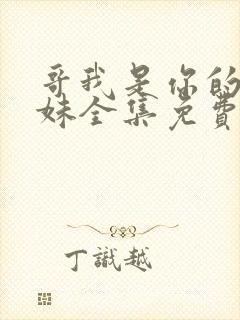 哥我是你的
妹全集免費
丁識越